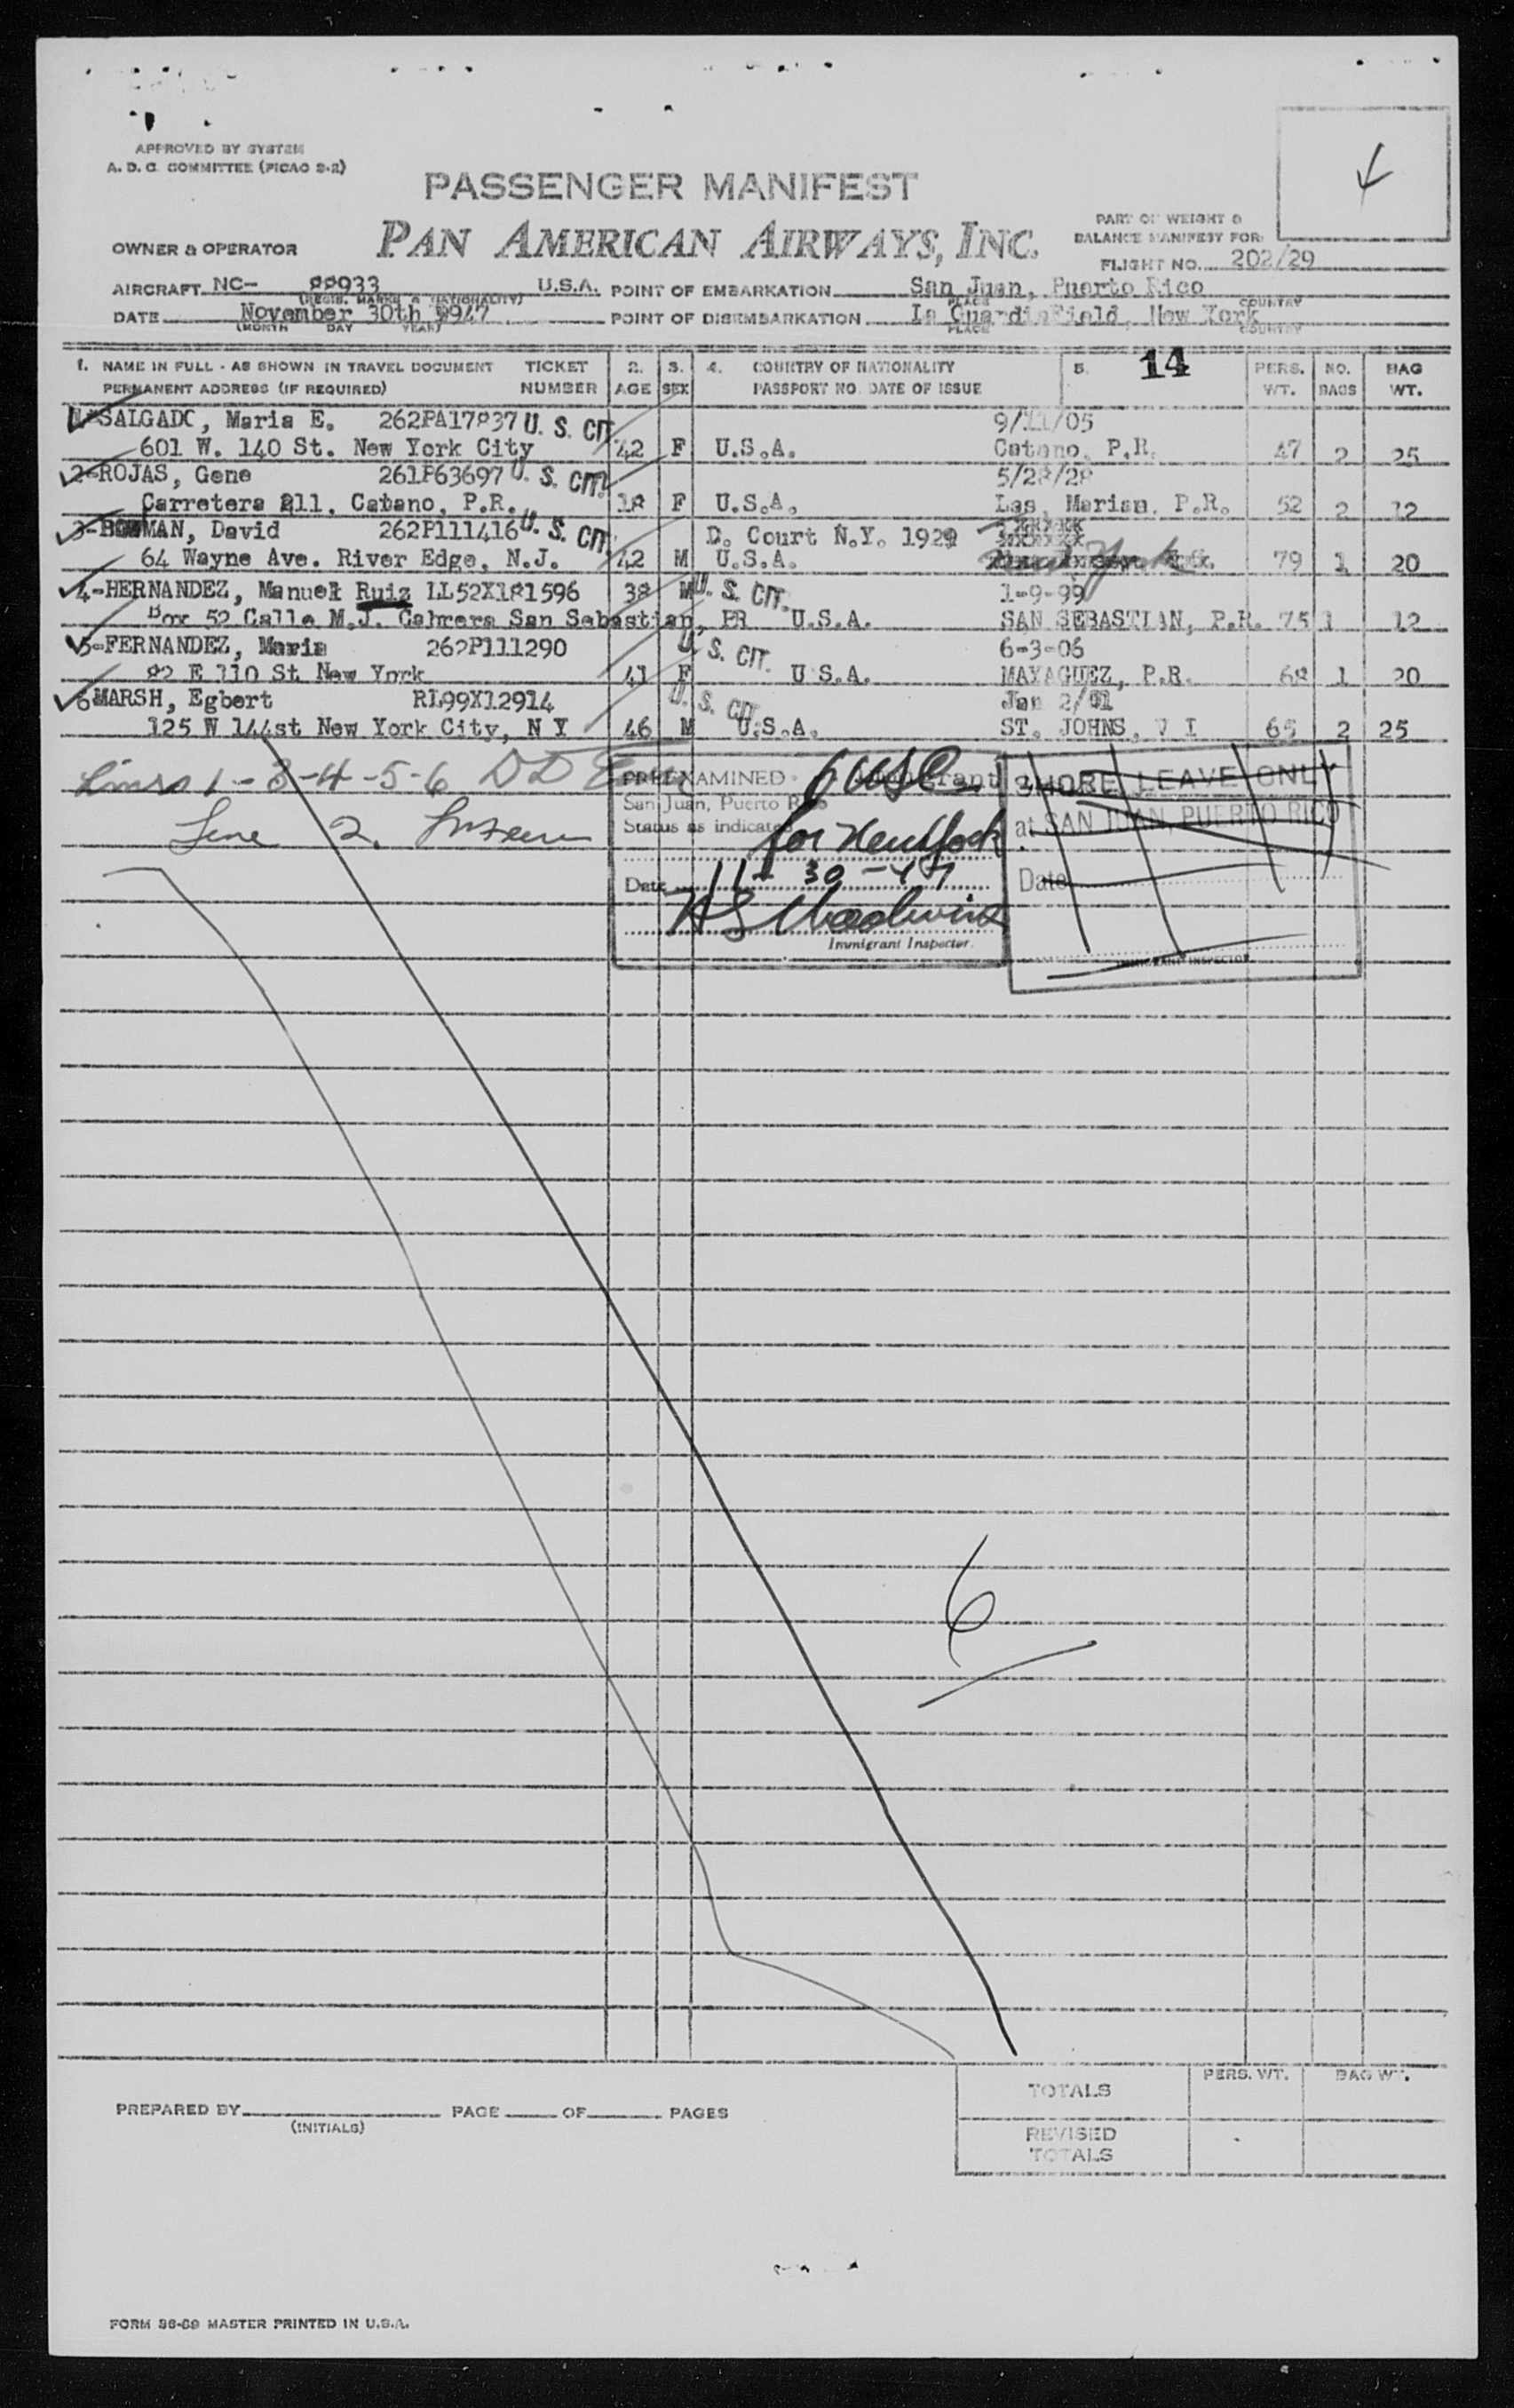 APPROVED BY SYSTEM
A. D. C. COMMITTEE (PICAO 2-2)
PASSENGER MANIFEST
OWNER & OPERATOR PAN AMERICAN AIRWAYS, INC.
PART OF WEIGHT &
BALANCE MANIFEST FOR
FLIGHT NO. 202/29
AIRCRAFT NC- 88933 U.S.A. POINT OF EMBARKATION San Juan, Puerto Rico
(REGIS. MARKS & NATIONALITY) PLACE COUNTRY
DATE November 30th 1947 POINT OF DISEMBARKATION La Guardia Field, New York
(MONTH DAY YEAR) PLACE COUNTRY
1. NAME IN FULL - AS SHOWN IN TRAVEL DOCUMENT TICKET 2. 3. 4. COUNTRY OF NATIONALITY 5. 14 PERS. NO. BAG
PERMANENT ADDRESS (IF REQUIRED) NUMBER AGE SEX PASSPORT NO. DATE OF ISSUE WT. BAGS WT.
1-SALGADO, Maria E. 262PA17837 U. S. CIT. /05
601 W. 140 St. New York City 42 F U.S.A. Catano, P.R. 47 2 25
2-ROJAS, Gene 261P63697 U. S. CIT. 5/28/28
Carretera 211, Catano, P.R. 18 F U.S.A. Las Marias, P.R. 52 2 12
3-BOWMAN, David 262P111416 U. S. CIT. D. Court N.Y. 1929
64 Wayne Ave. River Edge, N.J. 42 M U.S.A. New York 79 1 20
4-HERNANDEZ, Manuel Ruiz LL52X181596 38 M U. S. CIT. 1-9-99
Box 52 Calle M.J. Cabrera San Sebastian, PR U.S.A. SAN SEBASTIAN, P.R. 75 1 12
5-FERNANDEZ, Maria 262P111290 U. S. CIT. 6-3-06
82 E 110 St New York 41 F U.S.A. MAYAGUEZ, P.R. 68 1 20
6 MARSH, Egbert RL99X12914 U. S. CIT. Jan 2/01
125 W 144st New York City, N Y 46 M U.S.A. ST. JOHNS, V I 65 2 25
Lines 1-3-4-5-6 DD
Line 2.
PRE-EXAMINED 6 USC
San Juan, Puerto Rico
Status as indicated
for New York
Date 11-30-47
Immigrant Inspector
SHORE LEAVE ONLY
at SAN JUAN, PUERTO RICO
Date
IMMIGRANT INSPECTOR
6
TOTALS PERS. WT. BAG WT.
PREPARED BY PAGE OF PAGES
(INITIALS)
REVISED
TOTALS
FORM 36-69 MASTER PRINTED IN U.S.A.